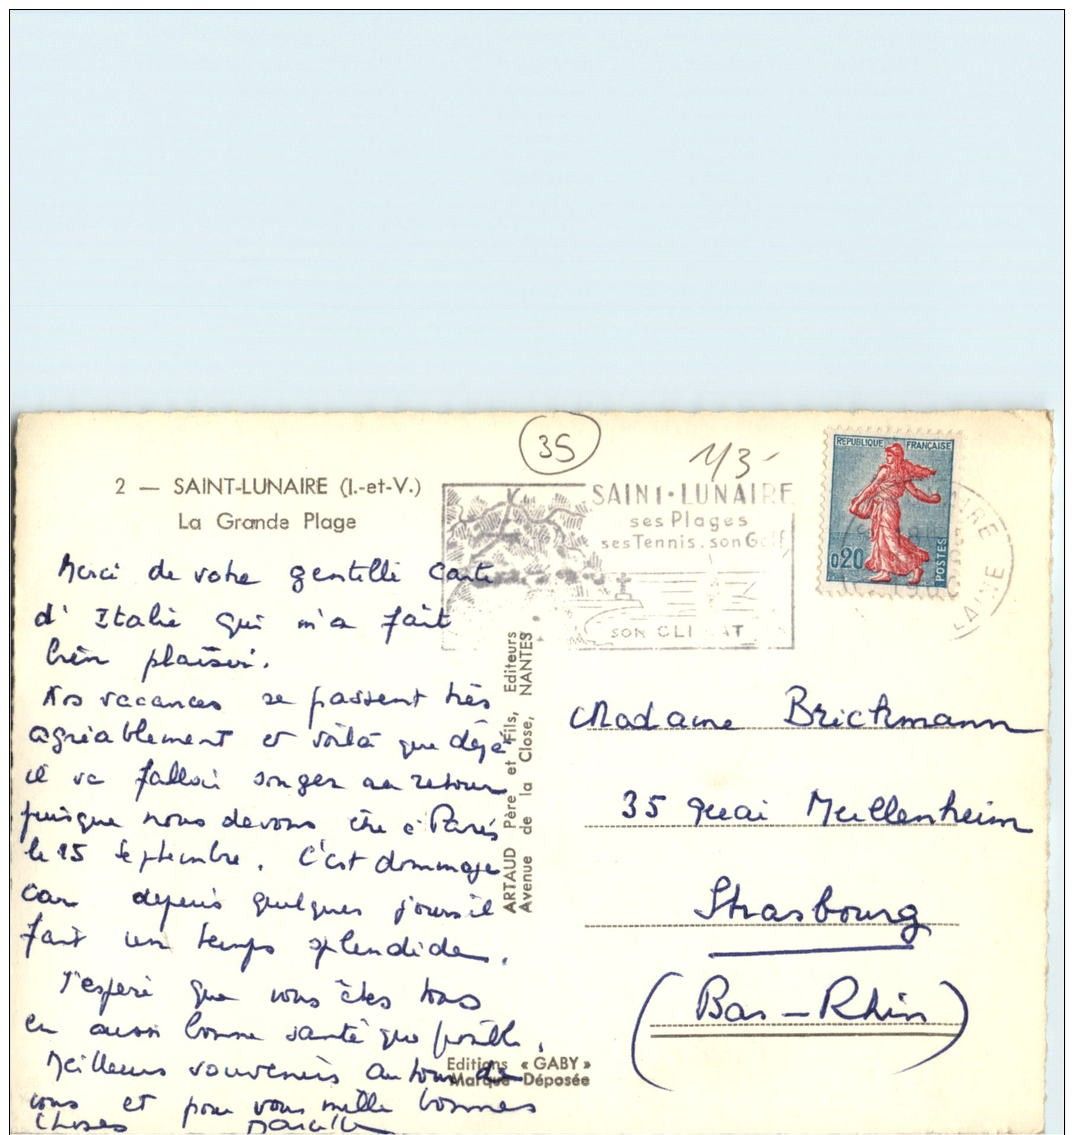 35
1/3-
2 — SAINT-LUNAIRE (I.-et-V.)
La Grande Plage
SAINT-LUNAIRE
ses Plages
ses Tennis. son Golf
SON CLIMAT
REPUBLIQUE FRANÇAISE
0,20
POSTES
Merci de votre gentille carte
d'Italie qui m'a fait
bien plaisir.
Nos vacances se passent très
agréablement et voilà que déjà
il va falloir songer au retour
puisque nous devons être à Paris
le 15 Septembre. C'est dommage
car depuis quelques jours il
fait un temps splendide.
J'espère que vous êtes tous
en aussi bonne santé que possible.
Meilleurs souvenirs autour de
vous et pour vous mille bonnes
choses
ARTAUD Père et Fils, Editeurs
Avenue de la Close, NANTES
Editions « GABY »
Marque Déposée
Madame Brickmann
35 quai Mullenheim
Strasbourg
(Bas-Rhin)